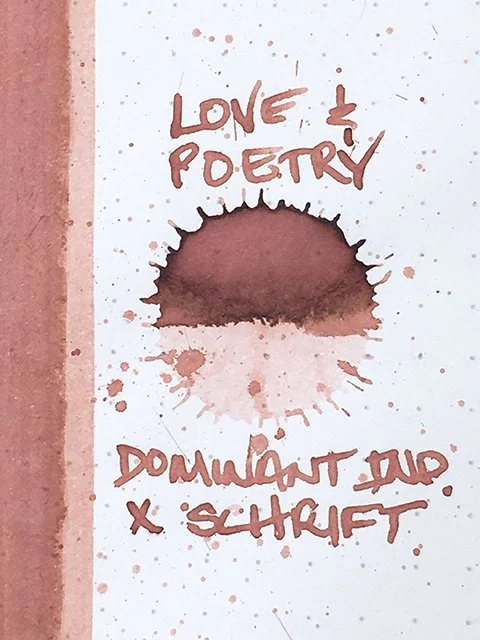 LOVE &
POETRY
DOMINANT IND.
X SCHRIFT